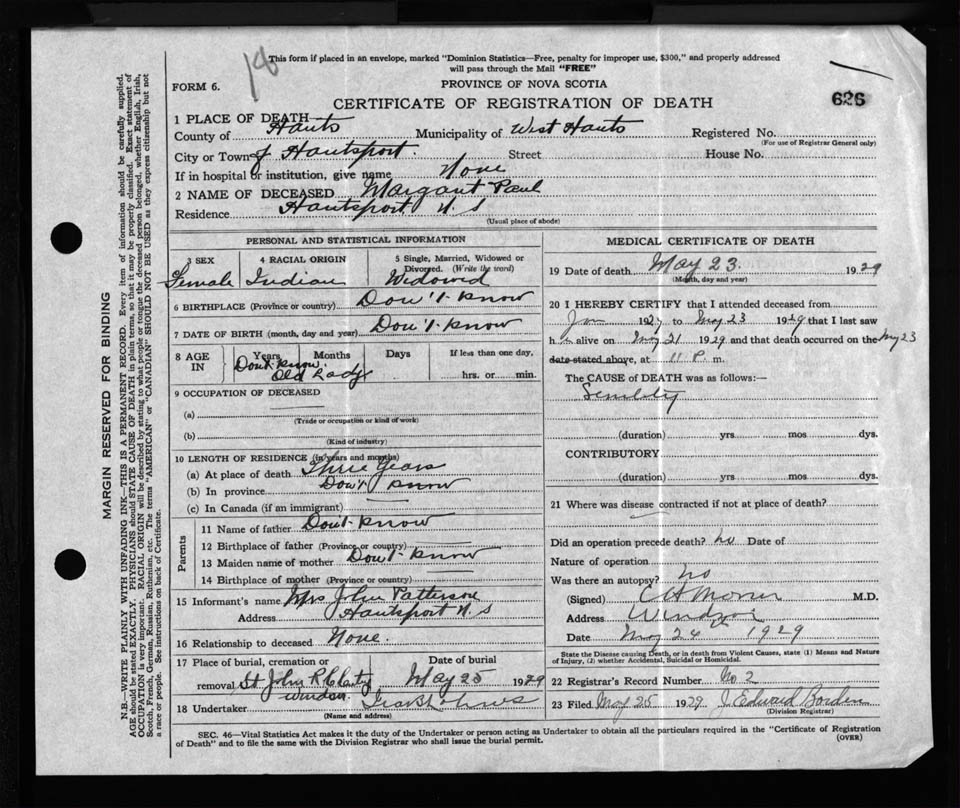 18
This form if placed in an envelope, marked "Dominion Statistics—Free, penalty for improper use, $300," and properly addressed
will pass through the Mail "FREE"
FORM 6.
PROVINCE OF NOVA SCOTIA
CERTIFICATE OF REGISTRATION OF DEATH
626
1 PLACE OF DEATH
County of Hants Municipality of West Hants Registered No.
(For use of Registrar General only)
City or Town of Hantsport. Street House No.
If in hospital or institution, give name None
2 NAME OF DECEASED Margaret Paul
Residence Hantsport N. S
(Usual place of abode)
MARGIN RESERVED FOR BINDING
N.B.—WRITE PLAINLY WITH UNFADING INK—THIS IS A PERMANENT RECORD. Every item of information should be carefully supplied.
AGE should be stated EXACTLY. PHYSICIANS should STATE CAUSE OF DEATH in plain terms, so that it may be properly classified. Exact statement of
OCCUPATION is very important. RACIAL ORIGIN will be described by stating to what people or tongue the deceased person belonged, whether English, Irish,
Scotch, French, German, Russian, Ruthenian, etc. The terms "AMERICAN" or "CANADIAN" SHOULD NOT BE USED as they express citizenship but not
a race or people. See instructions on back of Certificate.
PERSONAL AND STATISTICAL INFORMATION
3 SEX 4 RACIAL ORIGIN 5 Single, Married, Widowed or
Divorced. (Write the word)
Female Indian Widowed
6 BIRTHPLACE (Province or country) Don't know
7 DATE OF BIRTH (month, day and year) Don't know
8 AGE IN Years Months Days If less than one day,
Don't know. Old Lady hrs. or min.
9 OCCUPATION OF DECEASED
(a)
(Trade or occupation or kind of work)
(b)
(Kind of industry)
10 LENGTH OF RESIDENCE (in years and months)
(a) At place of death Three Years
(b) In province Don't know
(c) In Canada (if an immigrant)
Parents
11 Name of father Don't know
12 Birthplace of father (Province or country)
13 Maiden name of mother Don't know
14 Birthplace of mother (Province or country)
15 Informant's name Mrs John Patterson
Address Hantsport N. S
16 Relationship to deceased None.
17 Place of burial, cremation or Date of burial
removal St John R C May 25 1929
Windsor
18 Undertaker
(Name and address)
MEDICAL CERTIFICATE OF DEATH
19 Date of death May 23. 1929
(Month, day and year)
20 I HEREBY CERTIFY that I attended deceased from
Jan 1927 to May 23 1929 that I last saw
h alive on May 21 1929 and that death occurred on the May 23
date stated above, at 11 P. m.
The CAUSE OF DEATH was as follows:—
Senility
(duration) yrs mos dys.
CONTRIBUTORY
(duration) yrs mos dys.
21 Where was disease contracted if not at place of death?
Did an operation precede death? no Date of
Nature of operation
Was there an autopsy? no
(Signed) M.D.
Address Windsor
Date May 24th 1929
State the Disease causing Death, or in death from Violent Causes, state (1) Means and Nature
of Injury, (2) whether Accidental, Suicidal or Homicidal.
22 Registrar's Record Number No 2
23 Filed May 25 1929 J Edward Borden
(Division Registrar)
SEC. 46—Vital Statistics Act makes it the duty of the Undertaker or person acting as Undertaker to obtain all the particulars required in the "Certificate of Registration
of Death" and to file the same with the Division Registrar who shall issue the burial permit. (OVER)